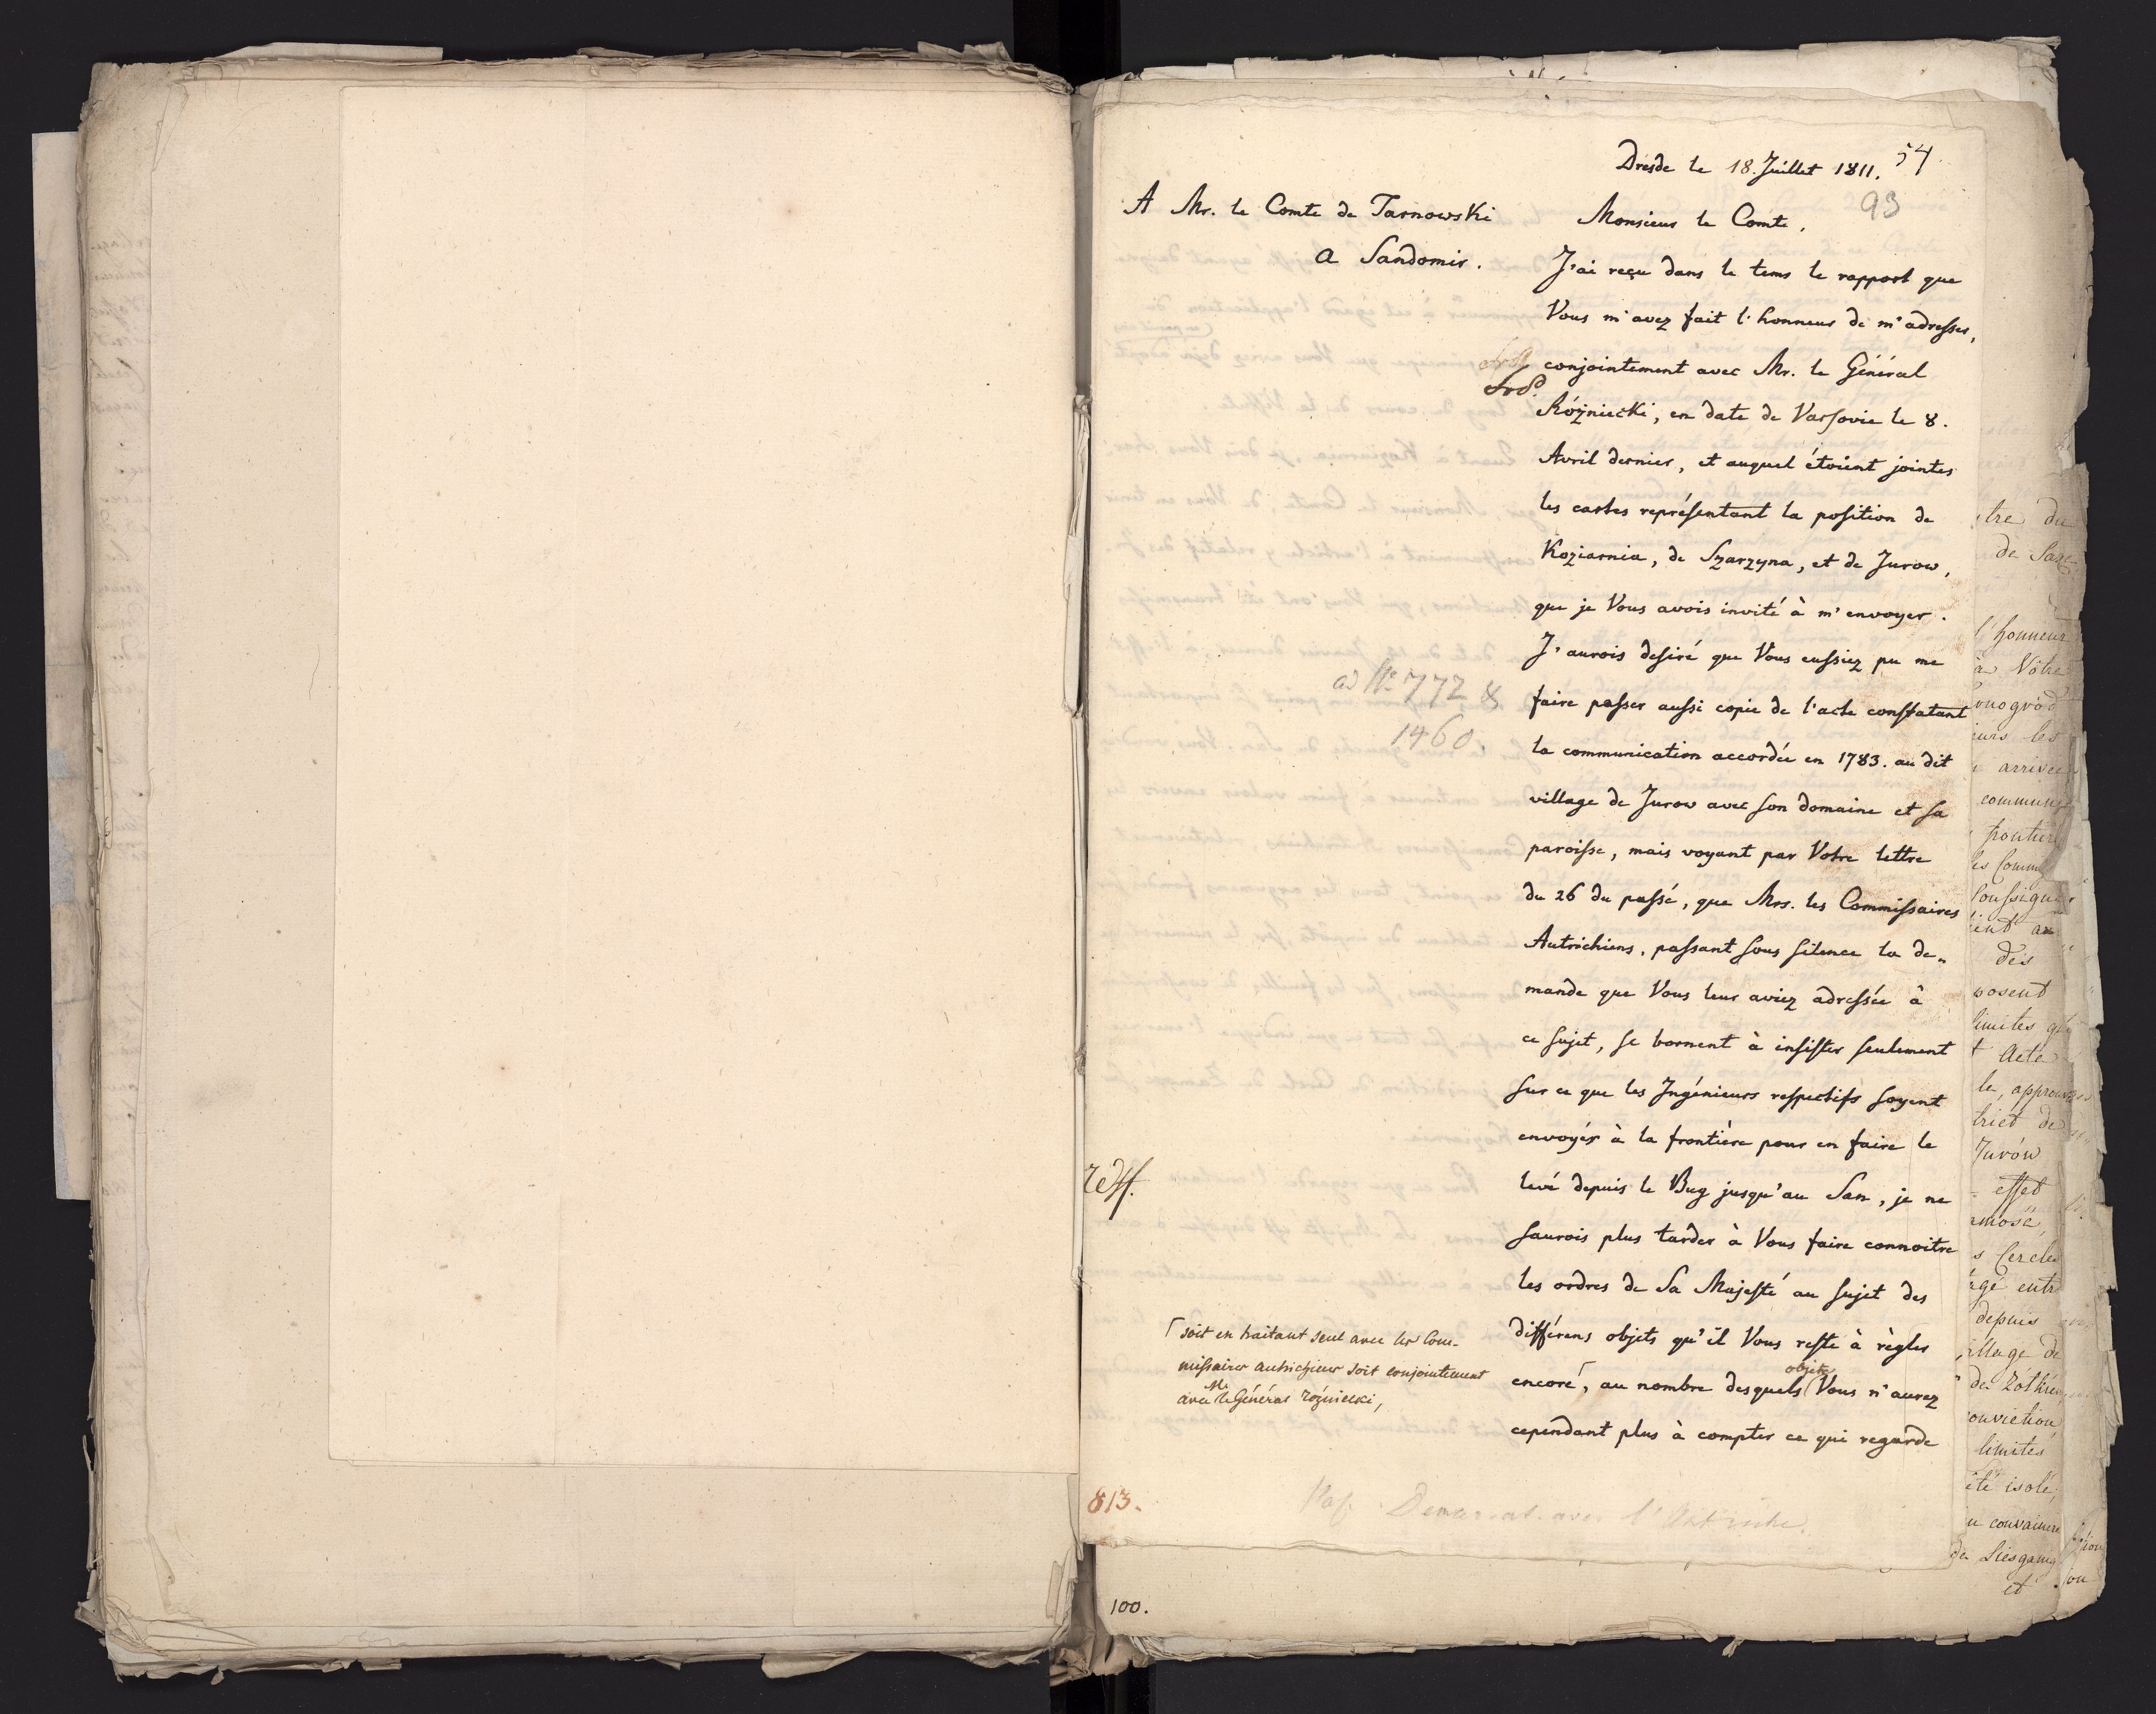 Dresde le 18. Juillet 1811.
54
93
A Mr. le Comte de Tarnowski
a Sandomir.
Monsieur le Comte,
J'ai reçu dans le tems le rapport que
Vous m'avez fait l'honneur de m'adresser,
conjointement avec Mr. le Général
Róźniecki, en date de Varsovie le 8.
Avril dernier, et auquel étoient jointes
les cartes représentant la position de
Koziarnia, de Szarzyna, et de Jurow,
que je Vous avois invité à m'envoyer.
J'aurois desiré que Vous eussiez pu me
faire passer aussi copie de l'acte constatant
la communication accordée en 1783. au dit
village de Jurow avec son domaine et sa
paroisse, mais voyant par Votre lettre
du 26 du passé, que Mrs. les Commissaires
Autrichiens, passant sous silence la de-
mande que Vous leur aviez adressée à
ce sujet, se bornent à insister seulement
sur ce que les Ingénieurs respectifs soyent
envoyés à la frontière pour en faire le
levé depuis le Bug jusqu'au San, je ne
saurois plus tarder à Vous faire connoitre
les ordres de Sa Majesté au sujet des
différens objets qu'il Vous reste à règler
encore⌈, au nombre desquels objets Vous n'aurez
cependant plus à compter ce qui regarde
ad No. 772 &
1460.
⌈soit en traitant seul avec les Com-
missaires autrichiens soit conjointement
avec Mr. le Général Rożniecki,
813.
Demarcat. avec l'Autriche.
100.
tre du
de Saxe
l'honneur
à Votre
arrivée
commun
des
posent
limites
Acte
le, approuvé
Jurów
effet
Cercle
depuis
village de
conviction
limites
été isolé,
convaincre
de Liesganig
et